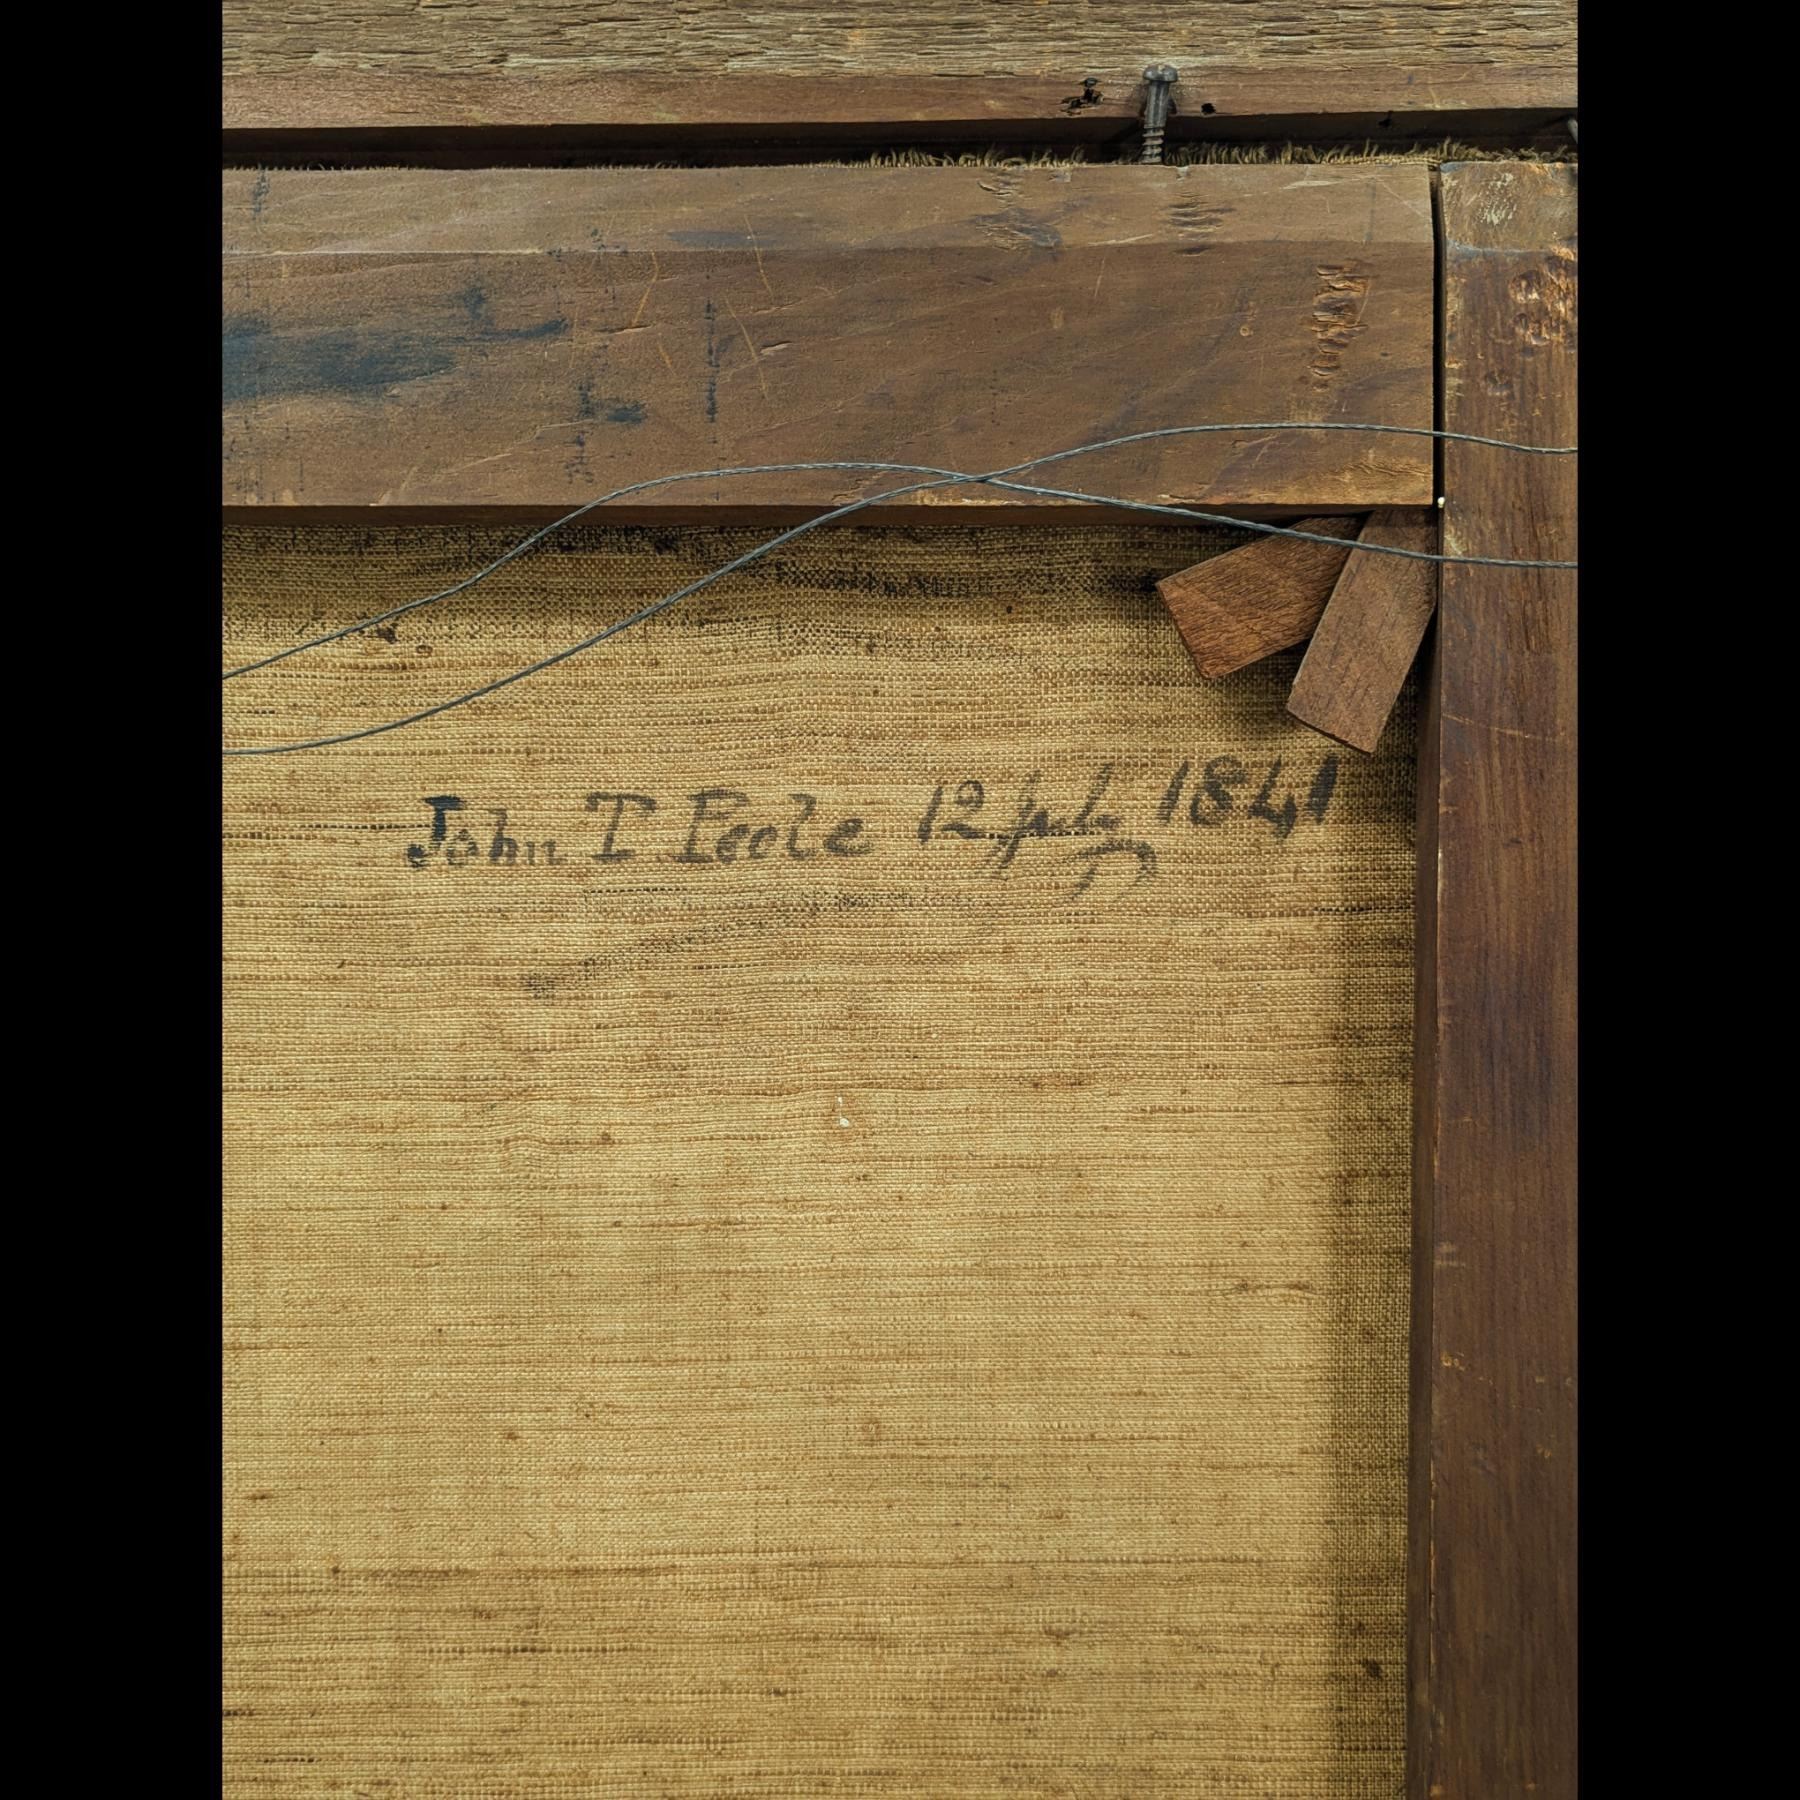 John T. Peele 12 July 1841